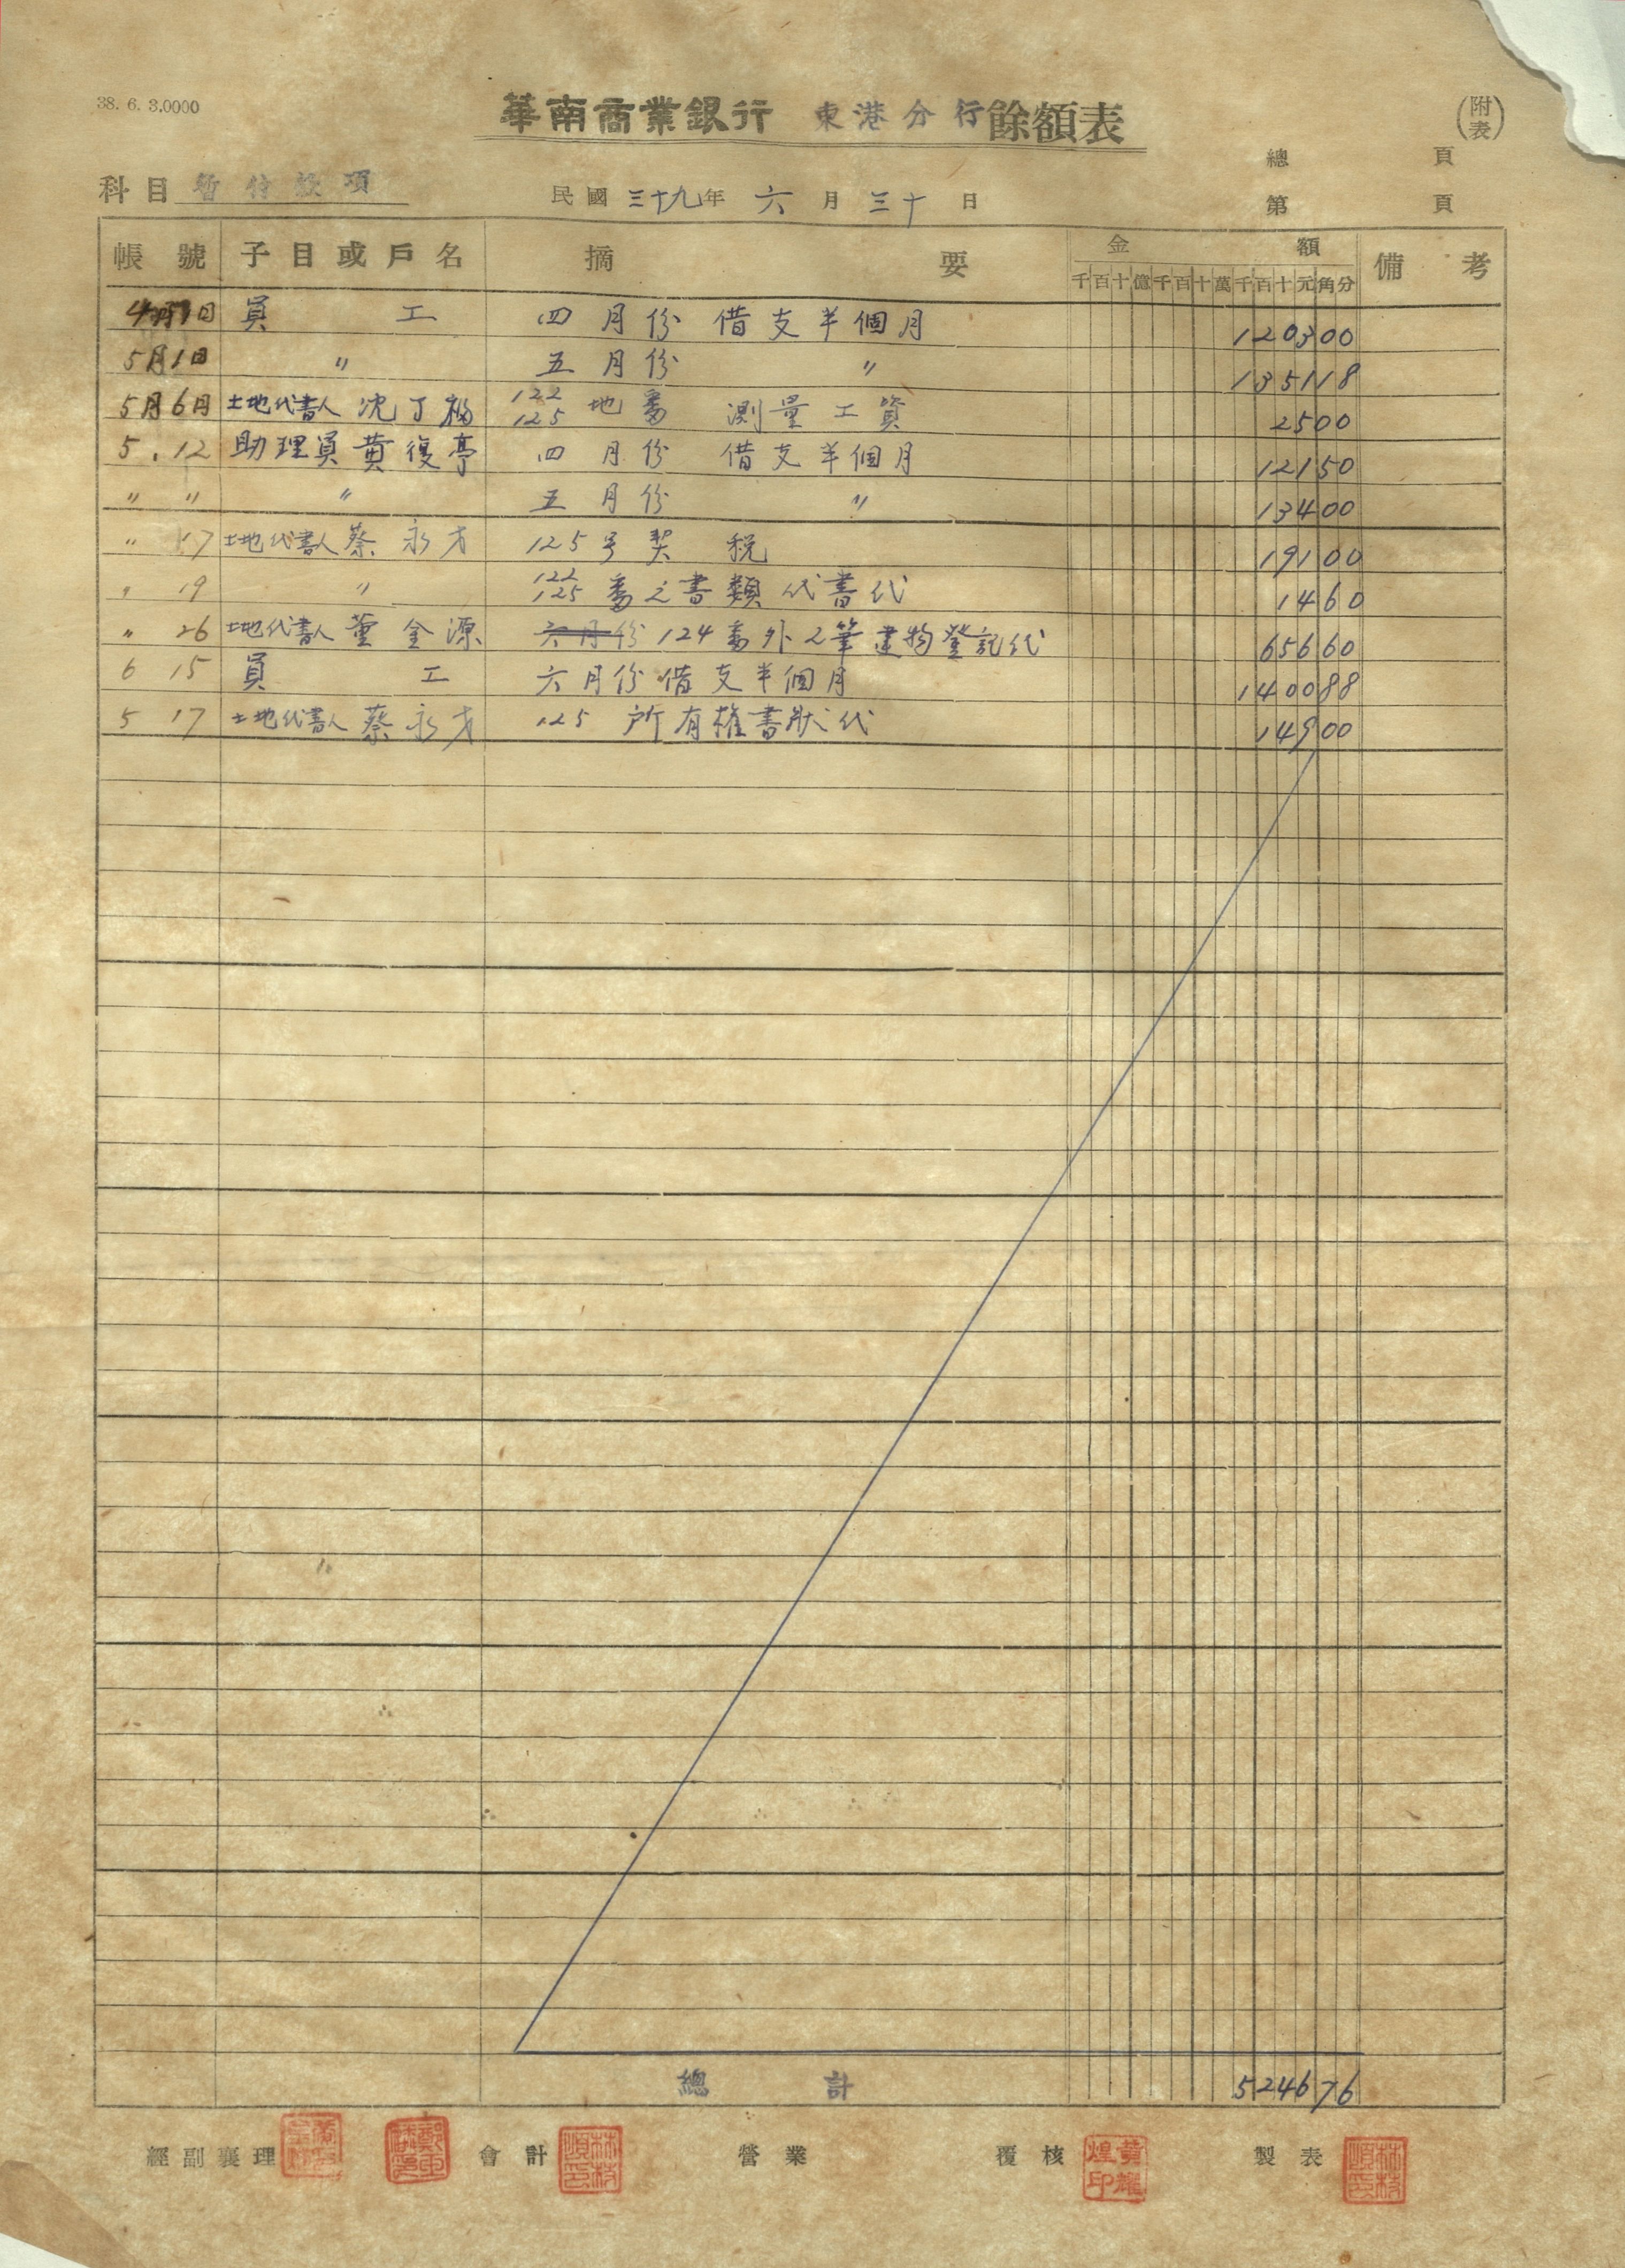 38. 6. 3.0000
華南商業銀行 東港分行餘額表
(附表)
總 頁
科目 暫付款項 民國三十九年 六月三十日
第 頁
帳號 子目或戶名 摘要 金額 備考
千百十億千百十萬千百十元角分
4月1日 員工 四月份 借支半個月 120300
5月1日 〃 五月份 〃 135118
5月6日 土地代書人 沈丁福 122 125 地番 測量工資 2500
5.12 助理員 黄復亭 四月份 借支半個月 12150
〃 〃 〃 五月份 〃 13400
〃 17 土地代書人 蔡永才 125号契稅 19100
〃 19 〃 122 125 番之書類代書代 1460
〃 26 土地代書人 董金源 六月份 124番外2筆建物登記代 65660
6 15 員工 六月份借支半個月 140088
5 17 土地代書人 蔡永才 125 所有權書狀代 14900
總計 524676
經副襄理 會計 營業 覆核 製表
林枝順印 黃耀煌印 林枝順印